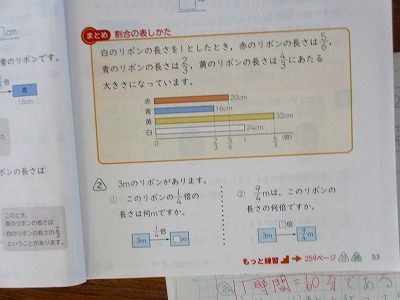 cm
倍
青のリボンです。
青
16cm
リボンの長さは
このとき、
青のリボンの長さは
白のリボンの長さの2/3
ということがあります。
まとめ 割合の表しかた
白のリボンの長さを1としたとき，赤のリボンの長さは5/6，
青のリボンの長さは2/3，黄のリボンの長さは4/3にあたる
大きさになっています。
赤 20cm
青 16cm
黄 32cm
白 24cm
0 2/3 5/6 1 4/3 (倍)
2 3mのリボンがあります。
① このリボンの1/4倍の
長さは何mですか。
1/4倍
3m → □m
② 9/4mは，このリボンの
長さの何倍ですか。
□倍
3m → 9/4m
もっと練習 → 259ページ
53
1時間=60分である